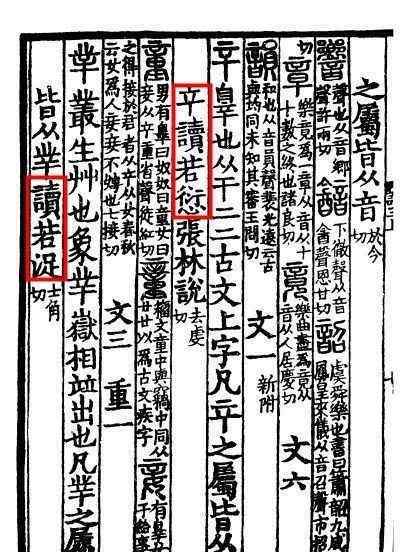 之屬皆从音於今切
響聲也从音鄉聲許兩切䪩下徹聲从音酓聲恩甘切韶虞舜樂也書曰簫韶九成鳳皇來儀从音召聲市招
切章樂竟爲一章从音从十十數之終也諸良切竟樂曲盡爲竟从音从人居慶切文六
韻和也从音員聲裴光遠云古與均同未知其審王問切文一新附
䇂辠也从干二二古文上字凡䇂之屬皆从
䇂讀若愆張林說去虔切
童男有辠曰奴奴曰童女曰妾从䇂重省聲徒紅切籒文童中與竊中同从廿廿以爲古文疾字妾有辠女子給事
之得接於君者从䇂从女春秋云女爲人妾妾不娉也七接切文三重一
丵叢生艸也象丵嶽相竝出也凡丵之屬
皆从丵讀若浞士角切